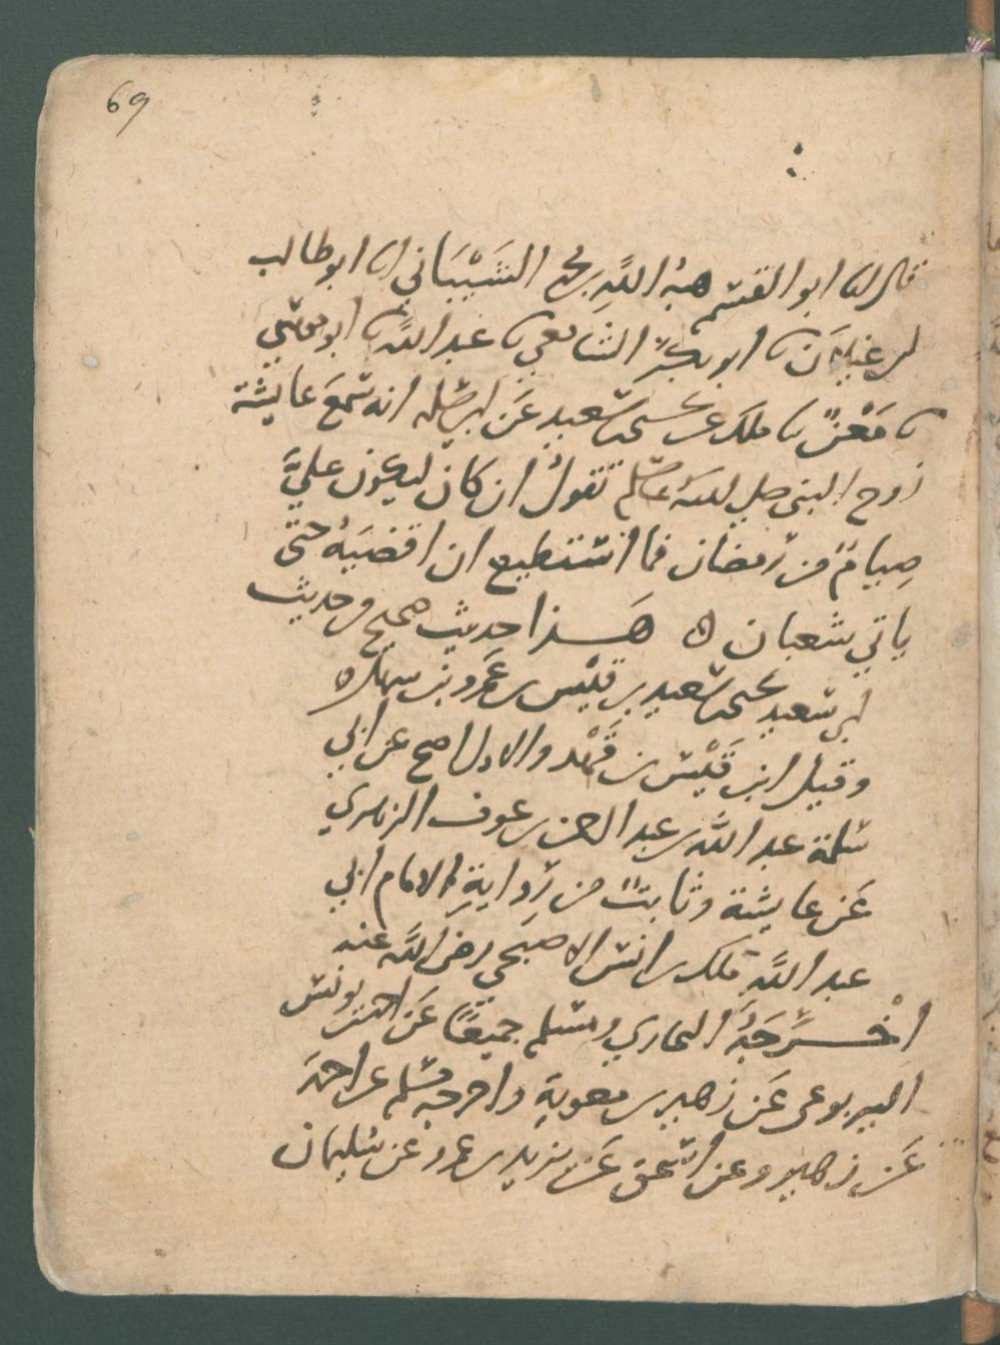 69
قال انا ابو القسم هبة الله بن محمد الشيباني انا ابو طالب
بن غيلان نا ابو بكر الشافعي نا عبد الله نا ابو موسى
نا معن نا ملك عن يحيى بن سعيد عن ابي سلمه انه سمع عايشة
زوج النبي صلى الله عليه وسلم تقول ان كان ليكون علي
صيام من رمضان فما استطيع ان اقضيه حتى
ياتي شعبان ه هذا حديث صحيح من حديث
ابي سعيد يحيى بن سعيد بن قيس بن عمرو بن سهل ه
وقيل ابن قيس بن قهد والاول اصح عن ابي
سلمة عبد الله بن عبد الرحمن بن عوف الزهري
عن عايشة وثابت من رواية الامام ابي
عبد الله ملك بن انس الاصبحي رضي الله عنه
اخرجه البخاري ومسلم جميعا عن احمد بن يونس
اليربوعي عن زهير بن معوية واخرجه مسلم عن احمد
عن زهير وعن اسحق عن بن عمر وعن سليمان